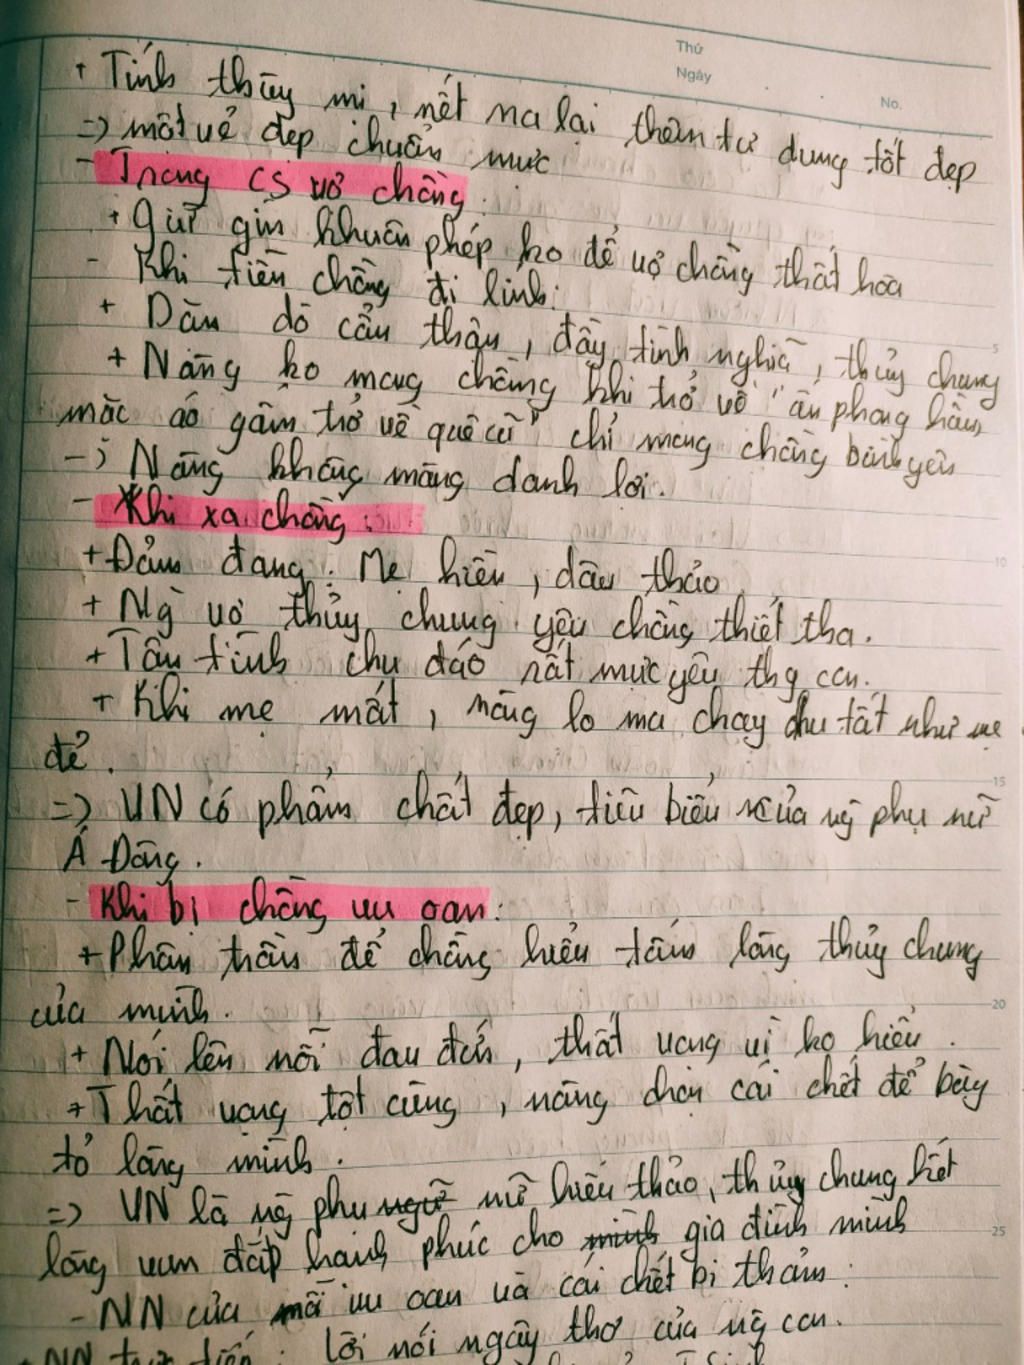 Thứ
Ngày
No.
+ Tính thùy mị, nết na lại thêm tư dung tốt đẹp
=> một vẻ đẹp chuẩn mực
- Trong CS vợ chồng:
+ Giữ gìn khuôn phép ko để vợ chồng thất hòa
- Khi tiễn chồng đi lính:
+ Dặn dò cẩn thận, đầy tình nghĩa, thủy chung
+ Nàng ko mong chồng khi trở về "ấn phong hầu,
mặc áo gấm trở về quê cũ" chỉ mong chồng bình yên
-> Nàng không màng danh lợi.
- Khi xa chồng:
+ Đảm đang: Mẹ hiền, dâu thảo
+ Ng vợ thủy chung yêu chồng thiết tha.
+ Tận tình chu đáo rất mực yêu thg con.
+ Khi mẹ mất, nàng lo ma chay chu tất như mẹ
đẻ.
=> VN có phẩm chất đẹp, tiêu biểu của ng phụ nữ
Á Đông.
- Khi bị chồng vu oan:
+ Phân trần để chồng hiểu tấm lòng thủy chung
của mình.
+ Nói lên nỗi đau đớn, thất vọng vì ko hiểu.
+ Thất vọng tột cùng, nàng chọn cái chết để bày
tỏ lòng mình.
=> VN là ng phụ nữ hiếu thảo, thủy chung hết
lòng vun đắp hạnh phúc cho gia đình mình
- NN của nỗi vu oan và cái chết bi thảm:
+ NN trực tiếp: lời nói ngây thơ của ng con.
5
10
15
20
25